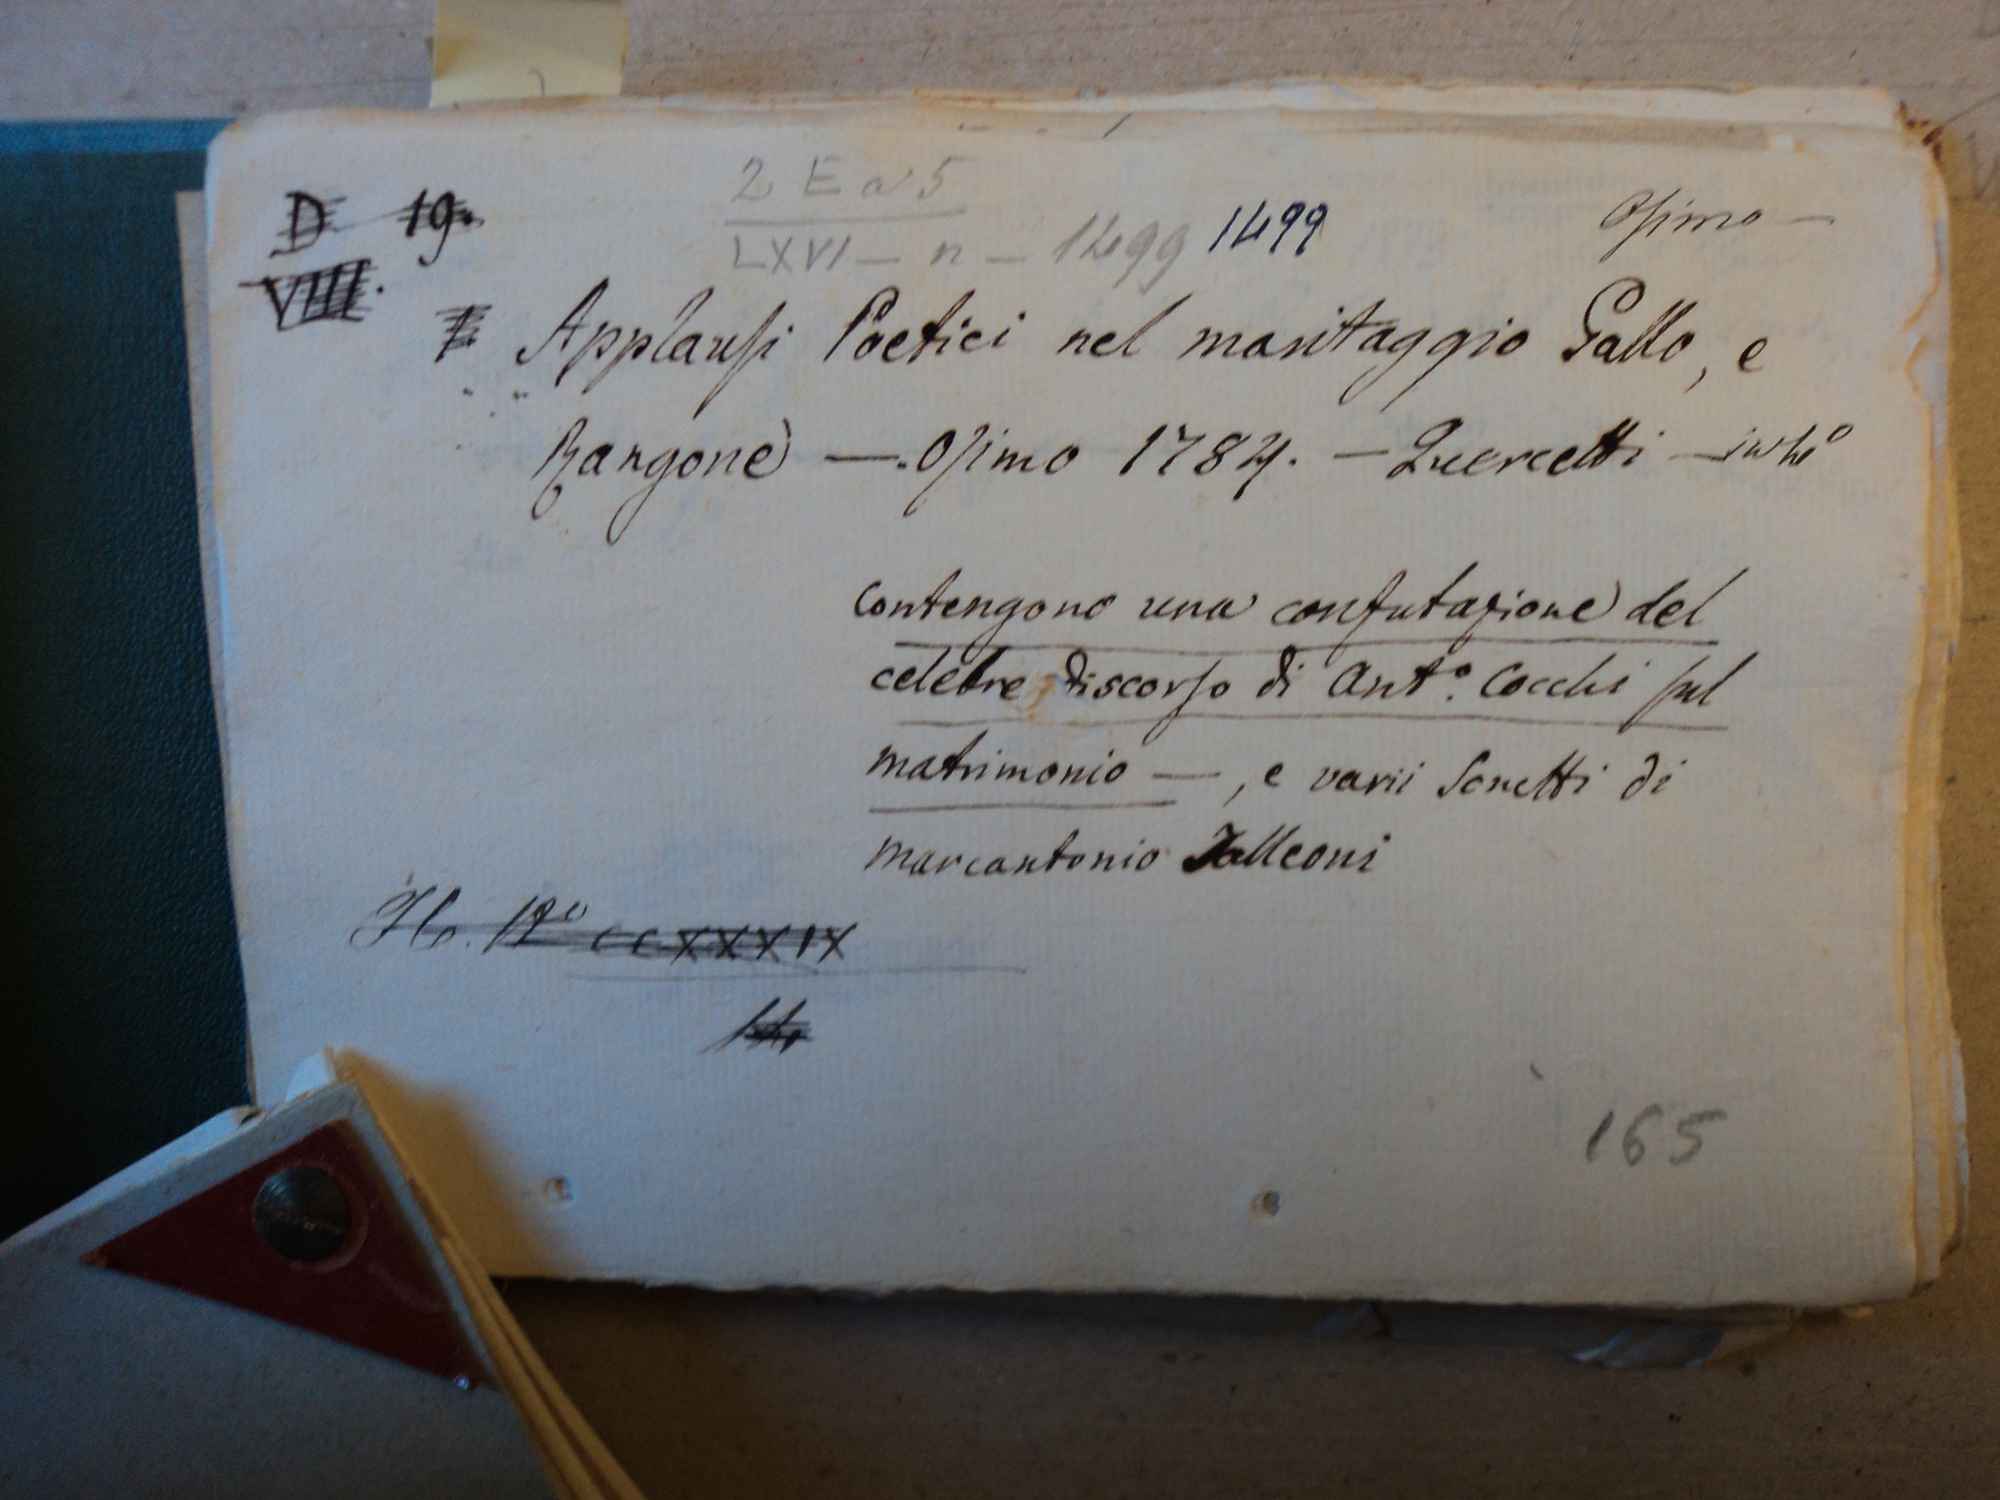 D 19.
VIII.
2 E a 5
LXVI - n - 1499 1499
Osimo —
Applausi Poetici nel maritaggio Gallo, e
Rangone — . Osimo 1784. — Quercetti —
contengono una confutazione del
celebre discorso di Ant.º Cocchi sul
matrimonio — , e varii Sonetti di
marcantonio Talleoni
CCXXXIX
165